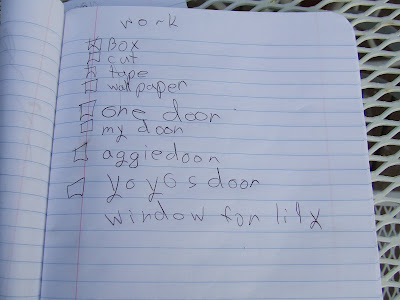 work
Box
cut
tape
wallpaper
one door
my door
aggiedoor
yoyosdoor
window for lily